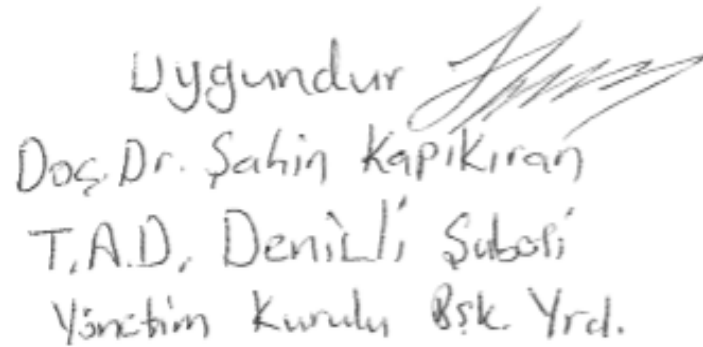 Uygundur
Doç. Dr. Şahin Kapıkıran
T.A.D. Denizli Şubesi
Yönetim Kurulu Bşk. Yrd.